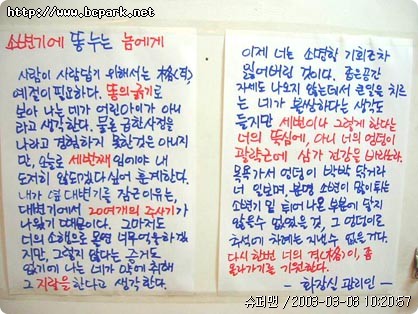 http://www.bcpark.net/
소변기에 똥누는 놈에게
사람이 사람답기 위해서는 格(격),
예절이 필요하다. 똥의 굵기로
보아 너는 네가 어린아이가 아니
라고 생각한다. 물론 급한사정을
나라고 경험하지 못한것은 아니
지만, 오늘로 세번째 일에야 내
도저히 않되겠다 싶어 훈계한다.
내가 옆 대변기를 잠근이유는,
대변기에서 20여개의 주사기가
나왔기 때문이다. 그마저도
너의 소행으로 몰면 너무 억울하겠
지만, 그렇지 않다는 증거도
없기에 나는 네가 마약에 취해
그 지랄을 한다고 생각한다.
이제 너는 소명할 기회조차
잃어버린 것이다. 좁은공간
자세도 나오지 않는데서 큰일을 치르
는 네가 불쌍하다는 생각도
들지만 세번이나 그렇게 한다는
너의 뚝심에, 아니 너의 엉덩이
괄약근에 삼가 건강을 바라노라.
목욕가서 엉덩이 박박 닦거라
너 임보며, 분명 소변이 많이튀는
소변기 밑 튀어나온 부분에 닿지
않을수 없었을 것, 그 엉덩이로
추석에 차례는 지낼수 없을거다.
다시 한번 너의 격(格)이, 좀
올라가기를 기원한다.
- 화장실 관리인 -
슈퍼맨 / 2003-03-03 10:20:57